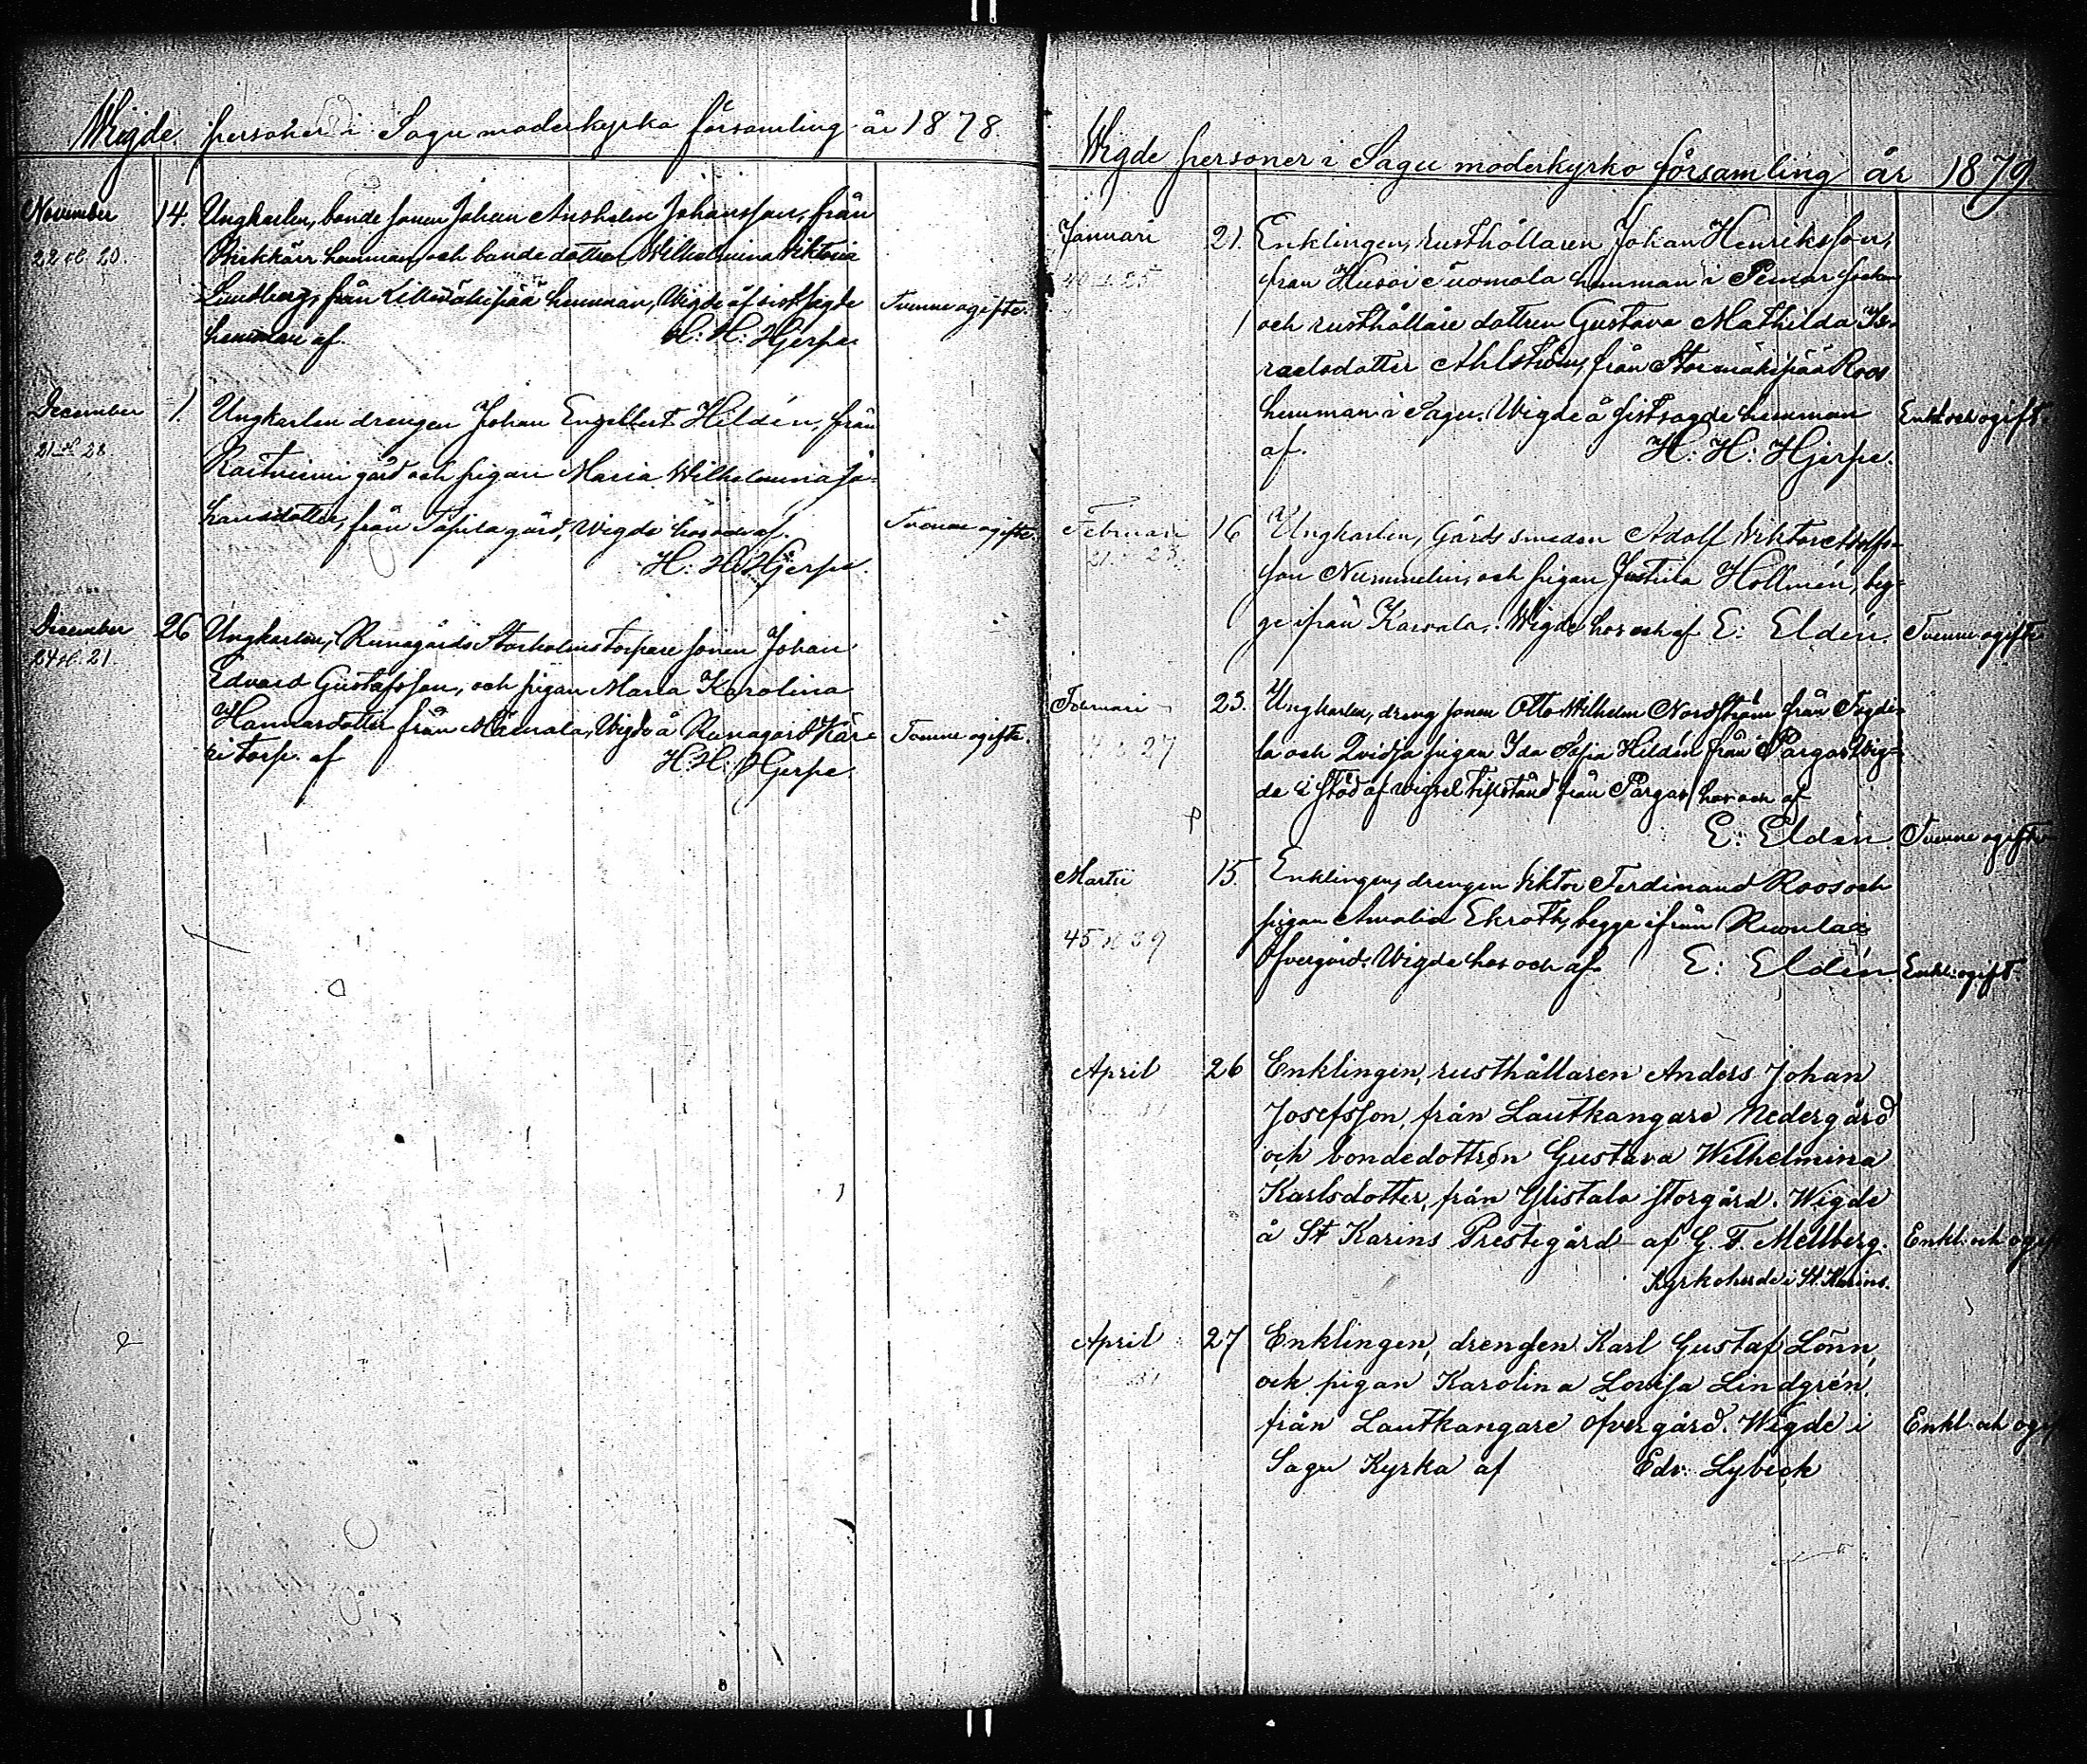 Wigde personer i Sagu moderkyrko församling år 1878.
November 14. Ungkarlen, bonde sonen Johan Anshelm Johansson, från
22 och 20. Birkkärr hemman och bonde dottren Wilhelmina Viktoria
Lundberg, från hemman, Wigde å sistsagde Tvenne ogifte.
hemman af. H: H: Hjerpe
December 1. Ungkarlen drengen Johan Engelbert Hildén, från
21 och 28. gård och pigan Maria Wilhelmina Jo-
hansdotter, från Tapila gård, Wigde hos och af. Tvenne ogifte.
H: H: Hjerpe.
December 26 Ungkarlen, Runagårds Storholms torpare sonen Johan
24 och 21. Edvard Gustafsson, och pigan Maria Karolina
från Wigde å Runagård Tvenne ogifte.
torp. af H: H: Hjerpe
Wigde personer i Sagu moderkyrko församling år 1879
Januari 21. Enklingen, rusthållaren Johan Henriksson,
från hemman i Pemar socken
och rusthållare dottren Gustava Mathilda Is-
raelsdotter Ahlström, från Stormälipää Roos
hemman i Sagu. Wigde å sistsagde hemman Enkl och ogift.
af. H: H: Hjerpe.
Februari 16 Ungkarlen, Gårds smeden Adolf Viktor Adolfs-
21 23. son Nummelin, och pigan Justina Hollmén, beg-
ge ifrån Karvala. Wigde hos och af E: Eldén. Tvenne ogifte
Februari 23. Ungkarlen, dreng sonen Otto Wilhelm Nordström från
27 la och pigan Ida Sofia Hildén från Pargas Wig-
de i stöd af wigsel tillstånd från Pargas hos och af
E: Eldén. Tvenne ogifte
Martii 15. Enklingen, drengen Viktor Ferdinand Roos och
pigan Amalia Ekroth, begge ifrån
45 och 39 Öfvergård. Wigde hos och af. E: Eldén. Enkl: ogift.
April 26 Enklingen, rusthållaren Anders Johan
Josefsson, från Lautkangare Nedergård
och bondedottren Gustava Wilhelmina
Karlsdotter, från Ylistalo storgård. Wigde
å St Karins Prestegård af G. F. Mellberg. Enkl. och
Kyrkoherde i St. Karins.
April 27 Enklingen, drengen Karl Gustaf Lönn,
och pigan Karolina Lovisa Lindgrén,
från Lautkangare öfvergård. Wigde i Enkl. och
Sagu Kyrka af Edv. Lybeck